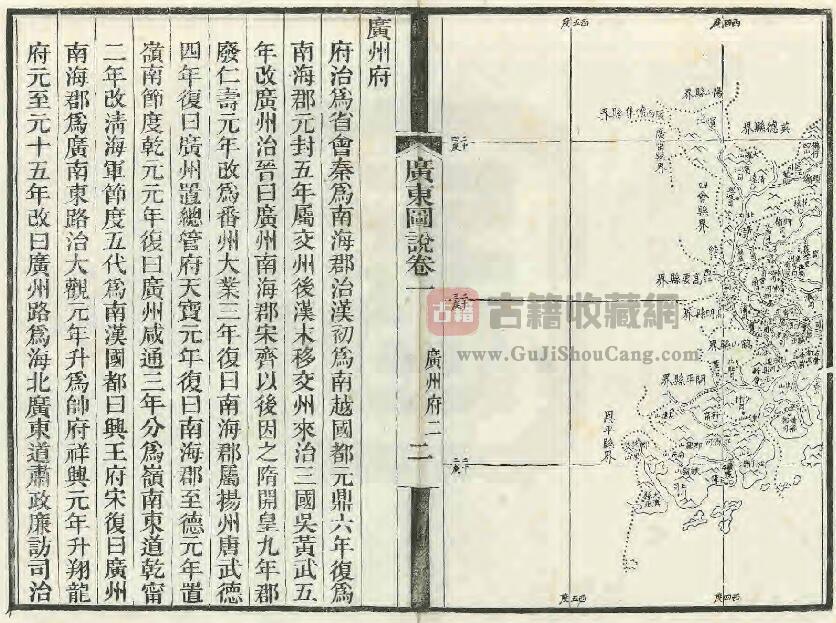 西四度
西五度
英德縣界
陽山縣界
廣西懷集縣界
廣寧縣界
四會縣界
高要縣界
高明縣界
鶴山縣界
開平縣界
恩平縣界
西四度
西五度
廣東圖說卷一
廣州府二
二
古籍
古籍收藏網
www.GuJiShouCang.com
廣州府
府治爲省會秦爲南海郡治漢初爲南越國都元鼎六年復爲
南海郡元封五年屬交州後漢末移交州來治三國吳黃武五
年改廣州治晉曰廣州南海郡宋齊以後因之隋開皇九年郡
廢仁壽元年改爲番州大業三年復曰南海郡屬揚州唐武德
四年復曰廣州置總管府天寶元年復曰南海郡至德元年置
嶺南節度乾元元年復曰廣州咸通三年分爲嶺南東道乾甯
二年改淸海軍節度五代爲南漢國都曰興王府宋復曰廣州
南海郡爲廣南東路治大觀元年升爲帥府祥興元年升翔龍
府元至元十五年改曰廣州路爲海北廣東道肅政廉訪司治